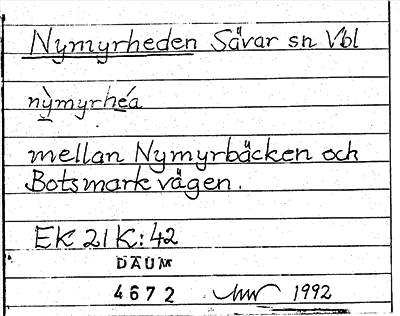 Nymyrheden Sävar sn Vbl
nỳmyrhéa
mellan Nymyrbäcken och
Botsmarkvägen.
EK 21K:42
DAUM
4672 1992